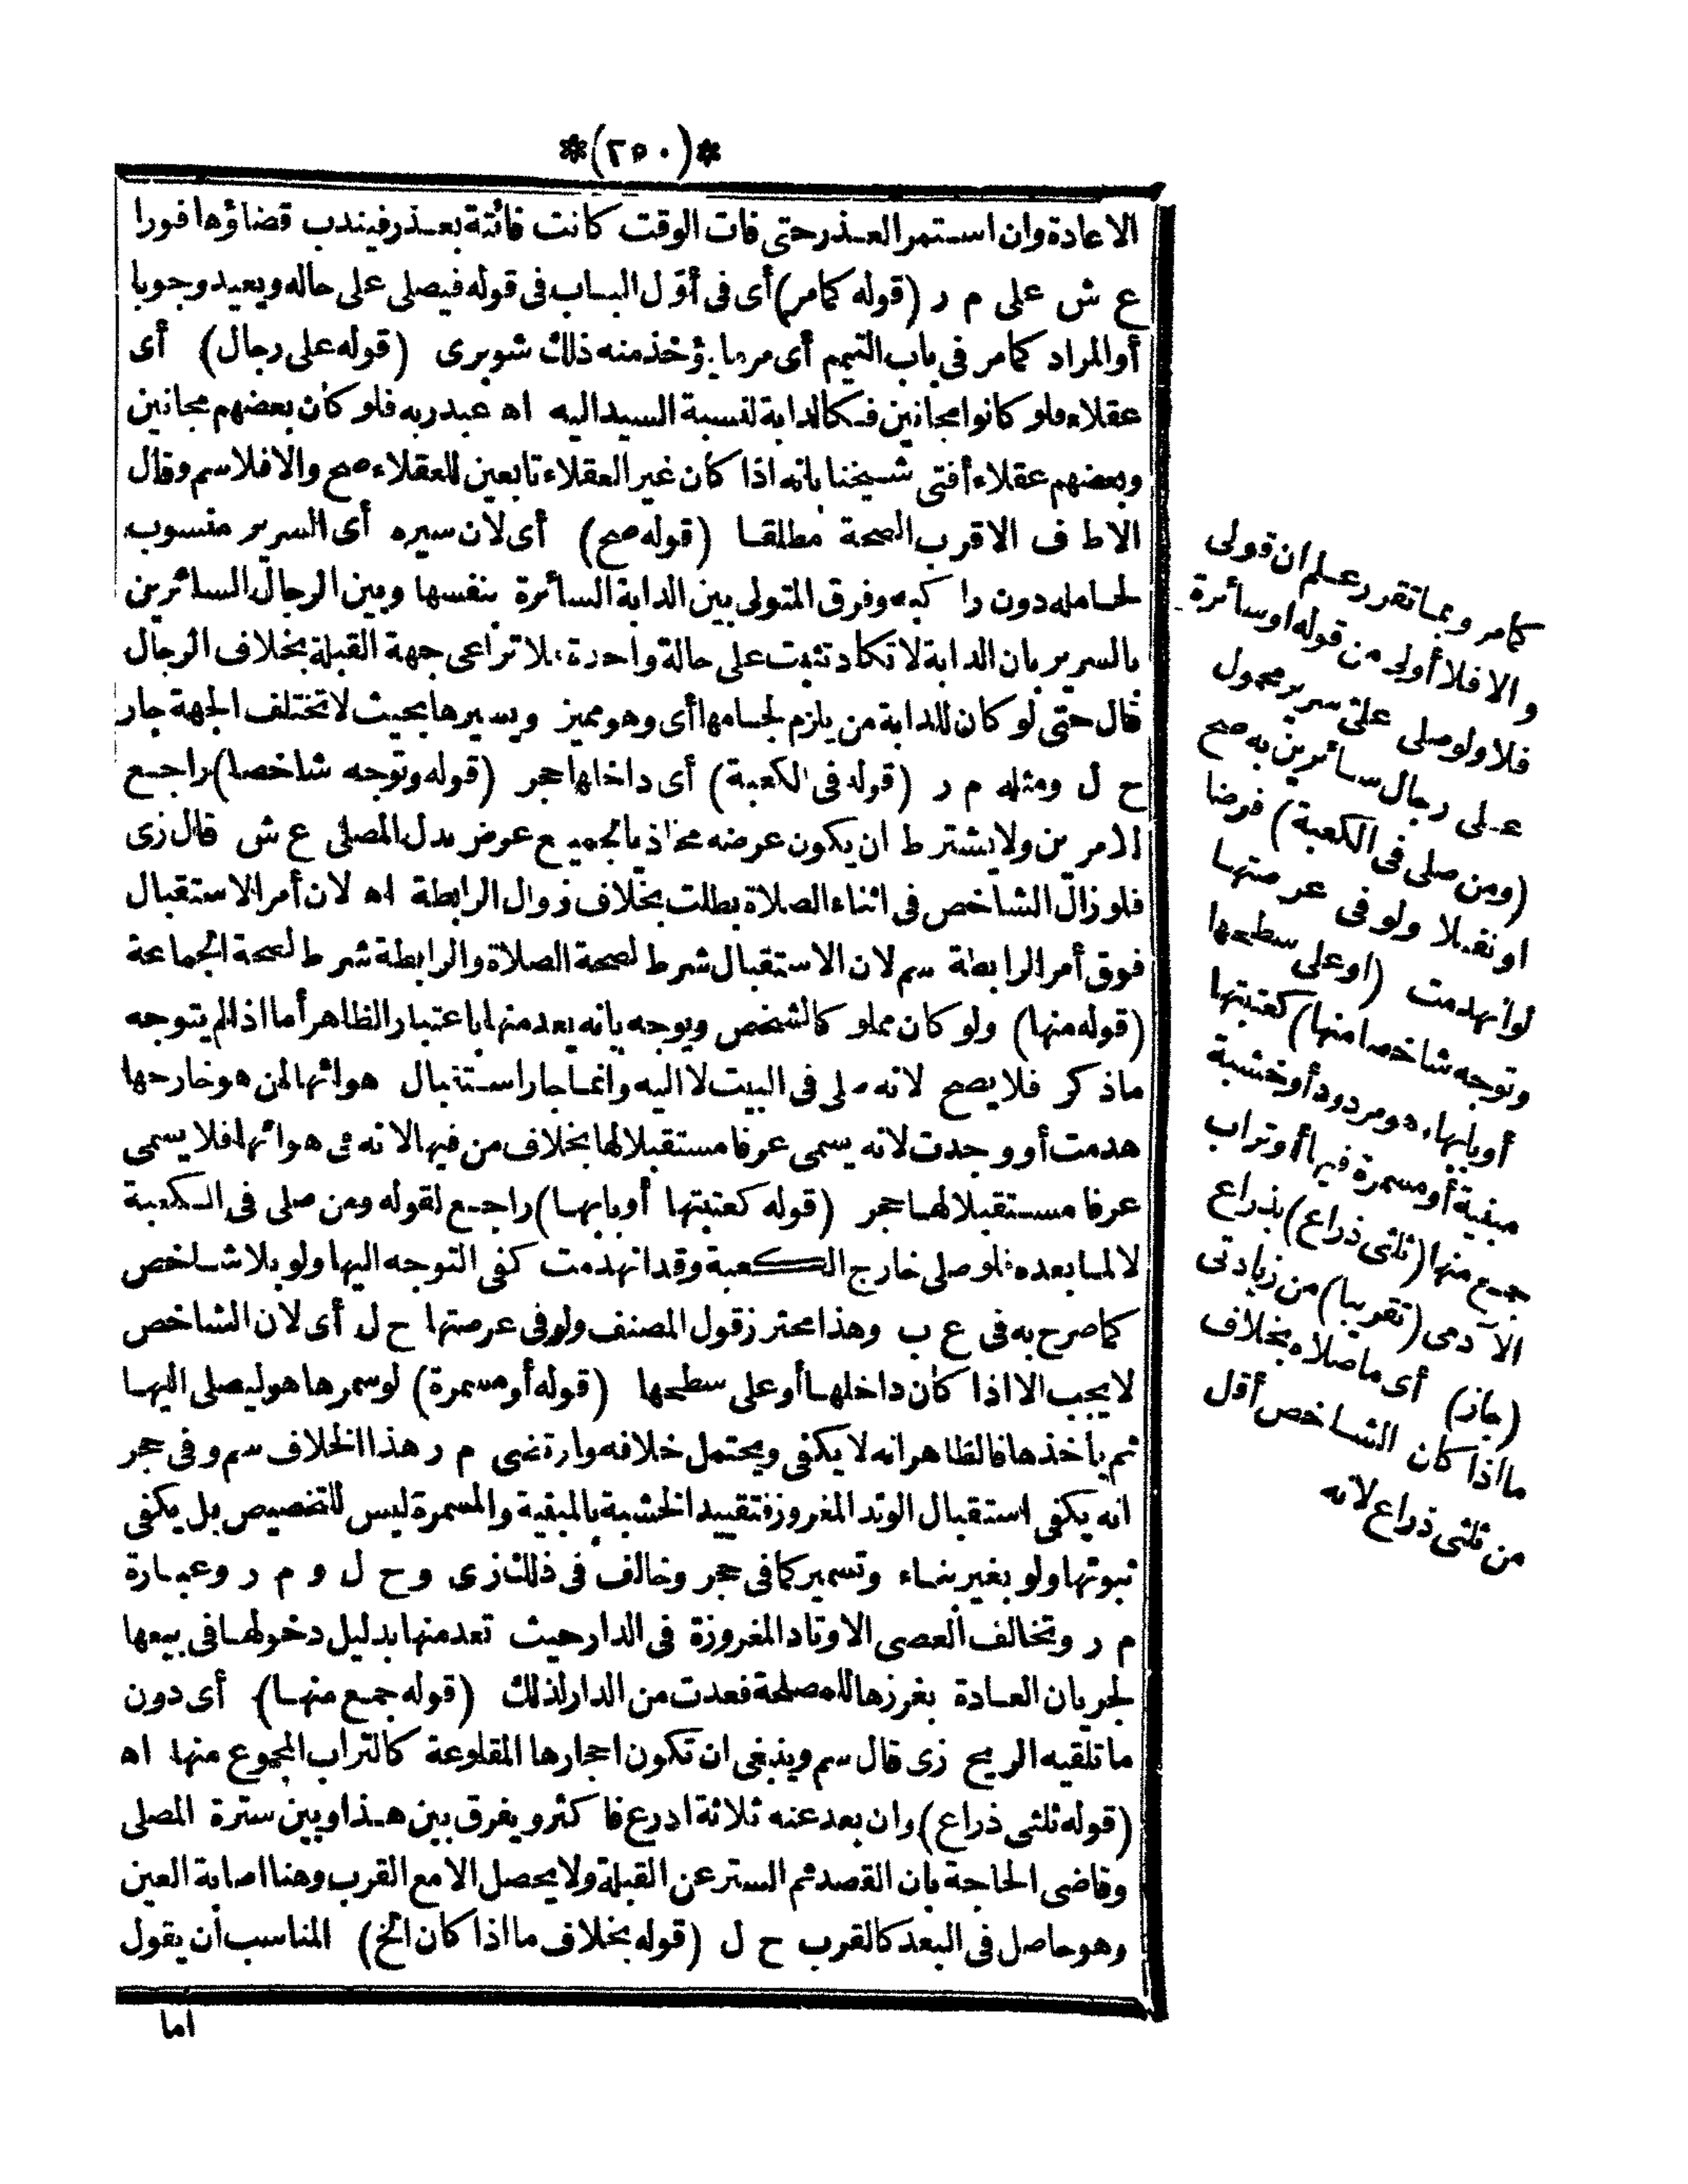 *(٢٥٠)*
الاعادة وان استمر العذر حتى فات الوقت كانت فائتة بعذر فيندب قضاؤها فورا
ع ش على م ر (قوله كمامر) أى فى أوّل الباب فى قوله فيصلى على حاله ويعيد وجوبا
أو المراد كمامر فى باب التيمم أى مر ما يؤخذ منه ذلك شوبرى (قوله على رجال) أى
عقلاء فلو كانوا مجانين فكالدابة لنسبة السيد اليه اه عبد ربه فلو كان بعضهم مجانين
وبعضهم عقلاء أفتى شيخنا بانه اذا كان غير العقلاء تابعين للعقلاء صح والا فلا سم وقال
الاط ف الاقرب الصحة مطلقا (قوله صح) أى لان سيره أى السرير منسوب
لحامله دون راكبه وفرق المتولى بين الدابة السائرة بنفسها وبين الرجال السائرين
بالسرير بان الدابة لا تكاد تثبت على حالة واحدة فلا تراعى جهة القبلة بخلاف الرجال
قال حتى لو كان للدابة من يلزم لجامها أى وهو مميز ويسيرها بحيث لا تختلف الجهة جاز
ح ل ومثله م ر (قوله فى الكعبة) أى داخلها حجر (قوله وتوجه شاخصا) راجع
للامرين ولا يشترط ان يكون عرضه محاذيا لجميع عرض بدل المصلى ع ش قال زى
فلو زال الشاخص فى اثناء الصلاة بطلت بخلاف زوال الرابطة اه لان أمر الاستقبال
فوق أمر الرابطة سم لان الاستقبال شرط لصحة الصلاة والرابطة شرط لصحة الجماعة
(قوله منها) ولو كان مملو كالشخص ويوجه بانه يعد منها باعتبار الظاهر أما اذا لم يتوجه
ماذكر فلا يصح لانه صلى فى البيت لا اليه وانما جاز استقبال هوائها لمن هو خارجها
هدمت أو وجدت لانه يسمى عرفا مستقبلا لها بخلاف من فيها لانه فى هوائها فلا يسمى
عرفا مستقبلا لها حجر (قوله كعتبتها أو بابها) راجع لقوله ومن صلى فى الكعبة
لا لما بعده فلو صلى خارج الكعبة وقد انهدمت كفى التوجه اليها ولو بلا شاخص
كما صرح به فى ع ب وهذا محترز قول المصنف ولو فى عرصتها ح ل أى لان الشاخص
لا يجب الا اذا كان داخلها أو على سطحها (قوله أو مسمرة) لو سمرها هو ليصلى اليها
ثم يأخذها فالظاهر انه لا يكفى ويحتمل خلافه وارتضى م ر هذا الخلاف سم وفى حجر
انه يكفى استقبال الوتد المغروز فتقييد الخشبة بالمبنية والمسمرة ليس للتخصيص بل يكفى
ثبوتها ولو بغير بناء وتسمير كما فى حجر وخالف فى ذلك زى وح ل و م ر وعبارة
م ر وتخالف العصى الاوتاد المغروزة فى الدار حيث تعد منها بدليل دخولها فى بيعها
لجريان العادة بغرزها للمصلحة فعدت من الدار لذلك (قوله جمع منها) أى دون
ما تلقيه الريح زى قال سم وينبغى ان تكون احجارها المقلوعة كالتراب المجموع منها اه
(قوله ثلثى ذراع) وان بعد عنه ثلاثة اذرع فاكثر ويفرق بين هذا وبين سترة المصلى
وقاضى الحاجة بان القصد ثم الستر عن القبلة ولا يحصل الا مع القرب وهنا اصابة العين
وهو حاصل فى البعد كالقرب ح ل (قوله بخلاف ما اذا كان الخ) المناسب أن يقول
اما
كمامر وبما تقرر علم ان قولى
والا فلا أولى من قوله او سائرة
فلا ولو صلى على سرير محمول
على رجال سائرين به صح
(ومن صلى فى الكعبة) فرضا
او نفلا ولو فى عرصتها
لو انهدمت (او على سطحها
وتوجه شاخصا منها) كعتبتها
أو بابها وهو مردود أو خشبة
مبنية أو مسمرة فيها أو تراب
جمع منها (ثلثى ذراع) بذراع
الآدمى (تقريبا) من زيادتى
(جاز) أى ما صلاه بخلاف
ما اذا كان الشاخص أقل
من ثلثى ذراع لانه